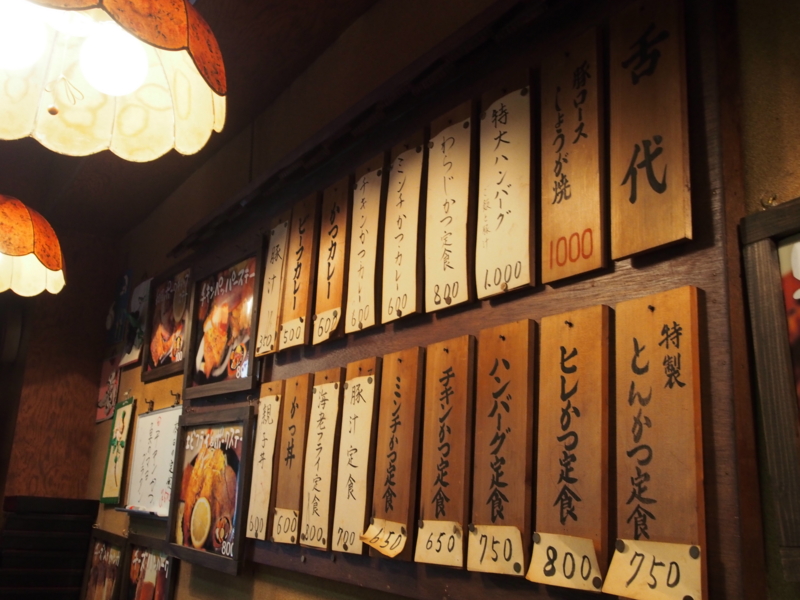 舌代
豚ロース
しょうが焼
1000
特大ハンバーグ
1.000
わらじかつ定食
800
ミンチかつカレー
600
チキンかつカレー
600
かつカレー
600
ビーフカレー
500
豚汁
300
特製
とんかつ定食
750
ヒレかつ定食
800
ハンバーグ定食
750
チキンかつ定食
650
ミンチかつ定食
650
豚汁定食
700
海老フライ定食
かつ丼
600
親子丼
600